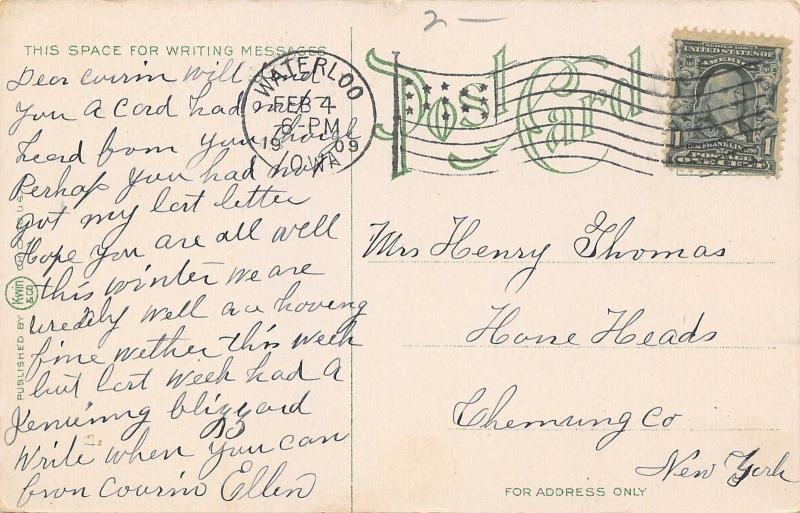 2 —
THIS SPACE FOR WRITING MESSAGES
Dear cousin Will
you a Card had
heard from you
Perhap you had
got my last letter
Hope you are all well
this winter we are
well are haveing
fine wether this week
but last week had A
Jenuinng blizzard
Write when you can
from Cousin Ellen
WATERLOO
FEB 4
6-PM
1909
IOWA
Post Card
SERIES 1902
UNITED STATES OF AMERICA
1 FRANKLIN 1
POSTAGE
ONE CENT
Mrs Henry Thomas
Horse Heads
Chemung Co
New York
FOR ADDRESS ONLY
PUBLISHED BY Kwin & Co CHICAGO U.S.